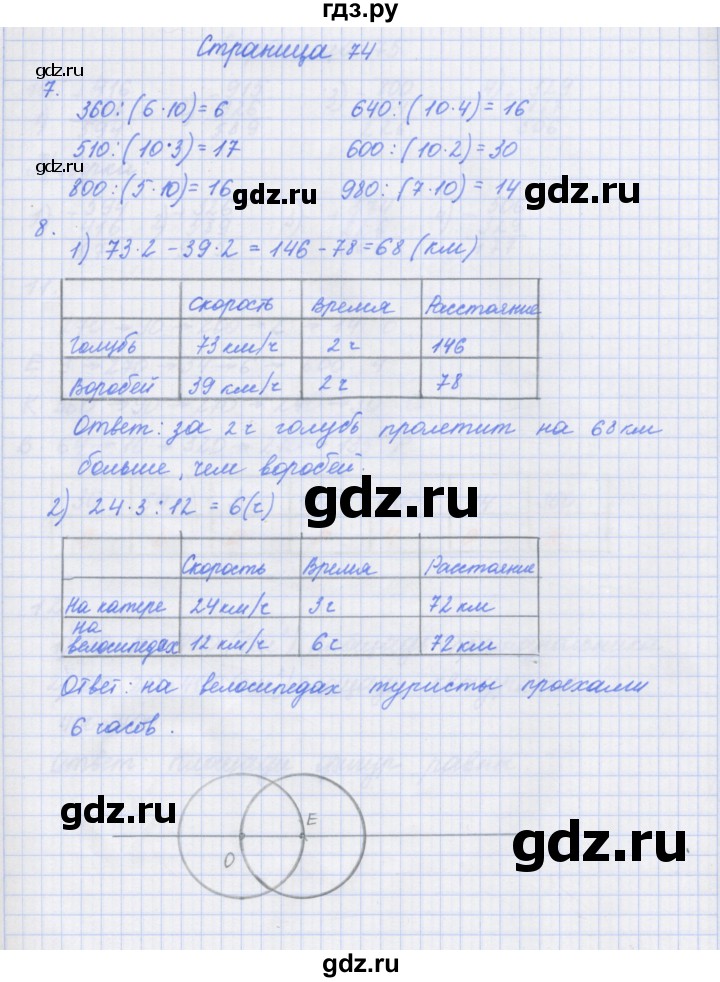 гдз.ру
Страница 74
gdz.ru
7.
360:(6·10)=6 640:(10·4)=16
510:(10·3)=17 600:(10·2)=30
gdz.ru
800:(5·10)=16 980:(7·10)=14
gdz.ru gdz.ru
8.
1) 73·2-39·2=146-78=68(км)
Скорость Время Расстояние
Голубь 73 км/ч 2ч 146
Воробей 39 км/ч 2ч 78
Ответ: за 2ч голубь пролетит на 68км
больше, чем воробей.
gdz.ru
2) 24·3:12=6(ч)
Скорость Время Расстояние
На катере 24км/ч 3ч 72 км
на
велосипедах 12 км/ч 6ч 72 км
Ответ: на велосипедах туристы проехали
6 часов.
gdz.ru
E
gdz.ru
O
gdz.ru